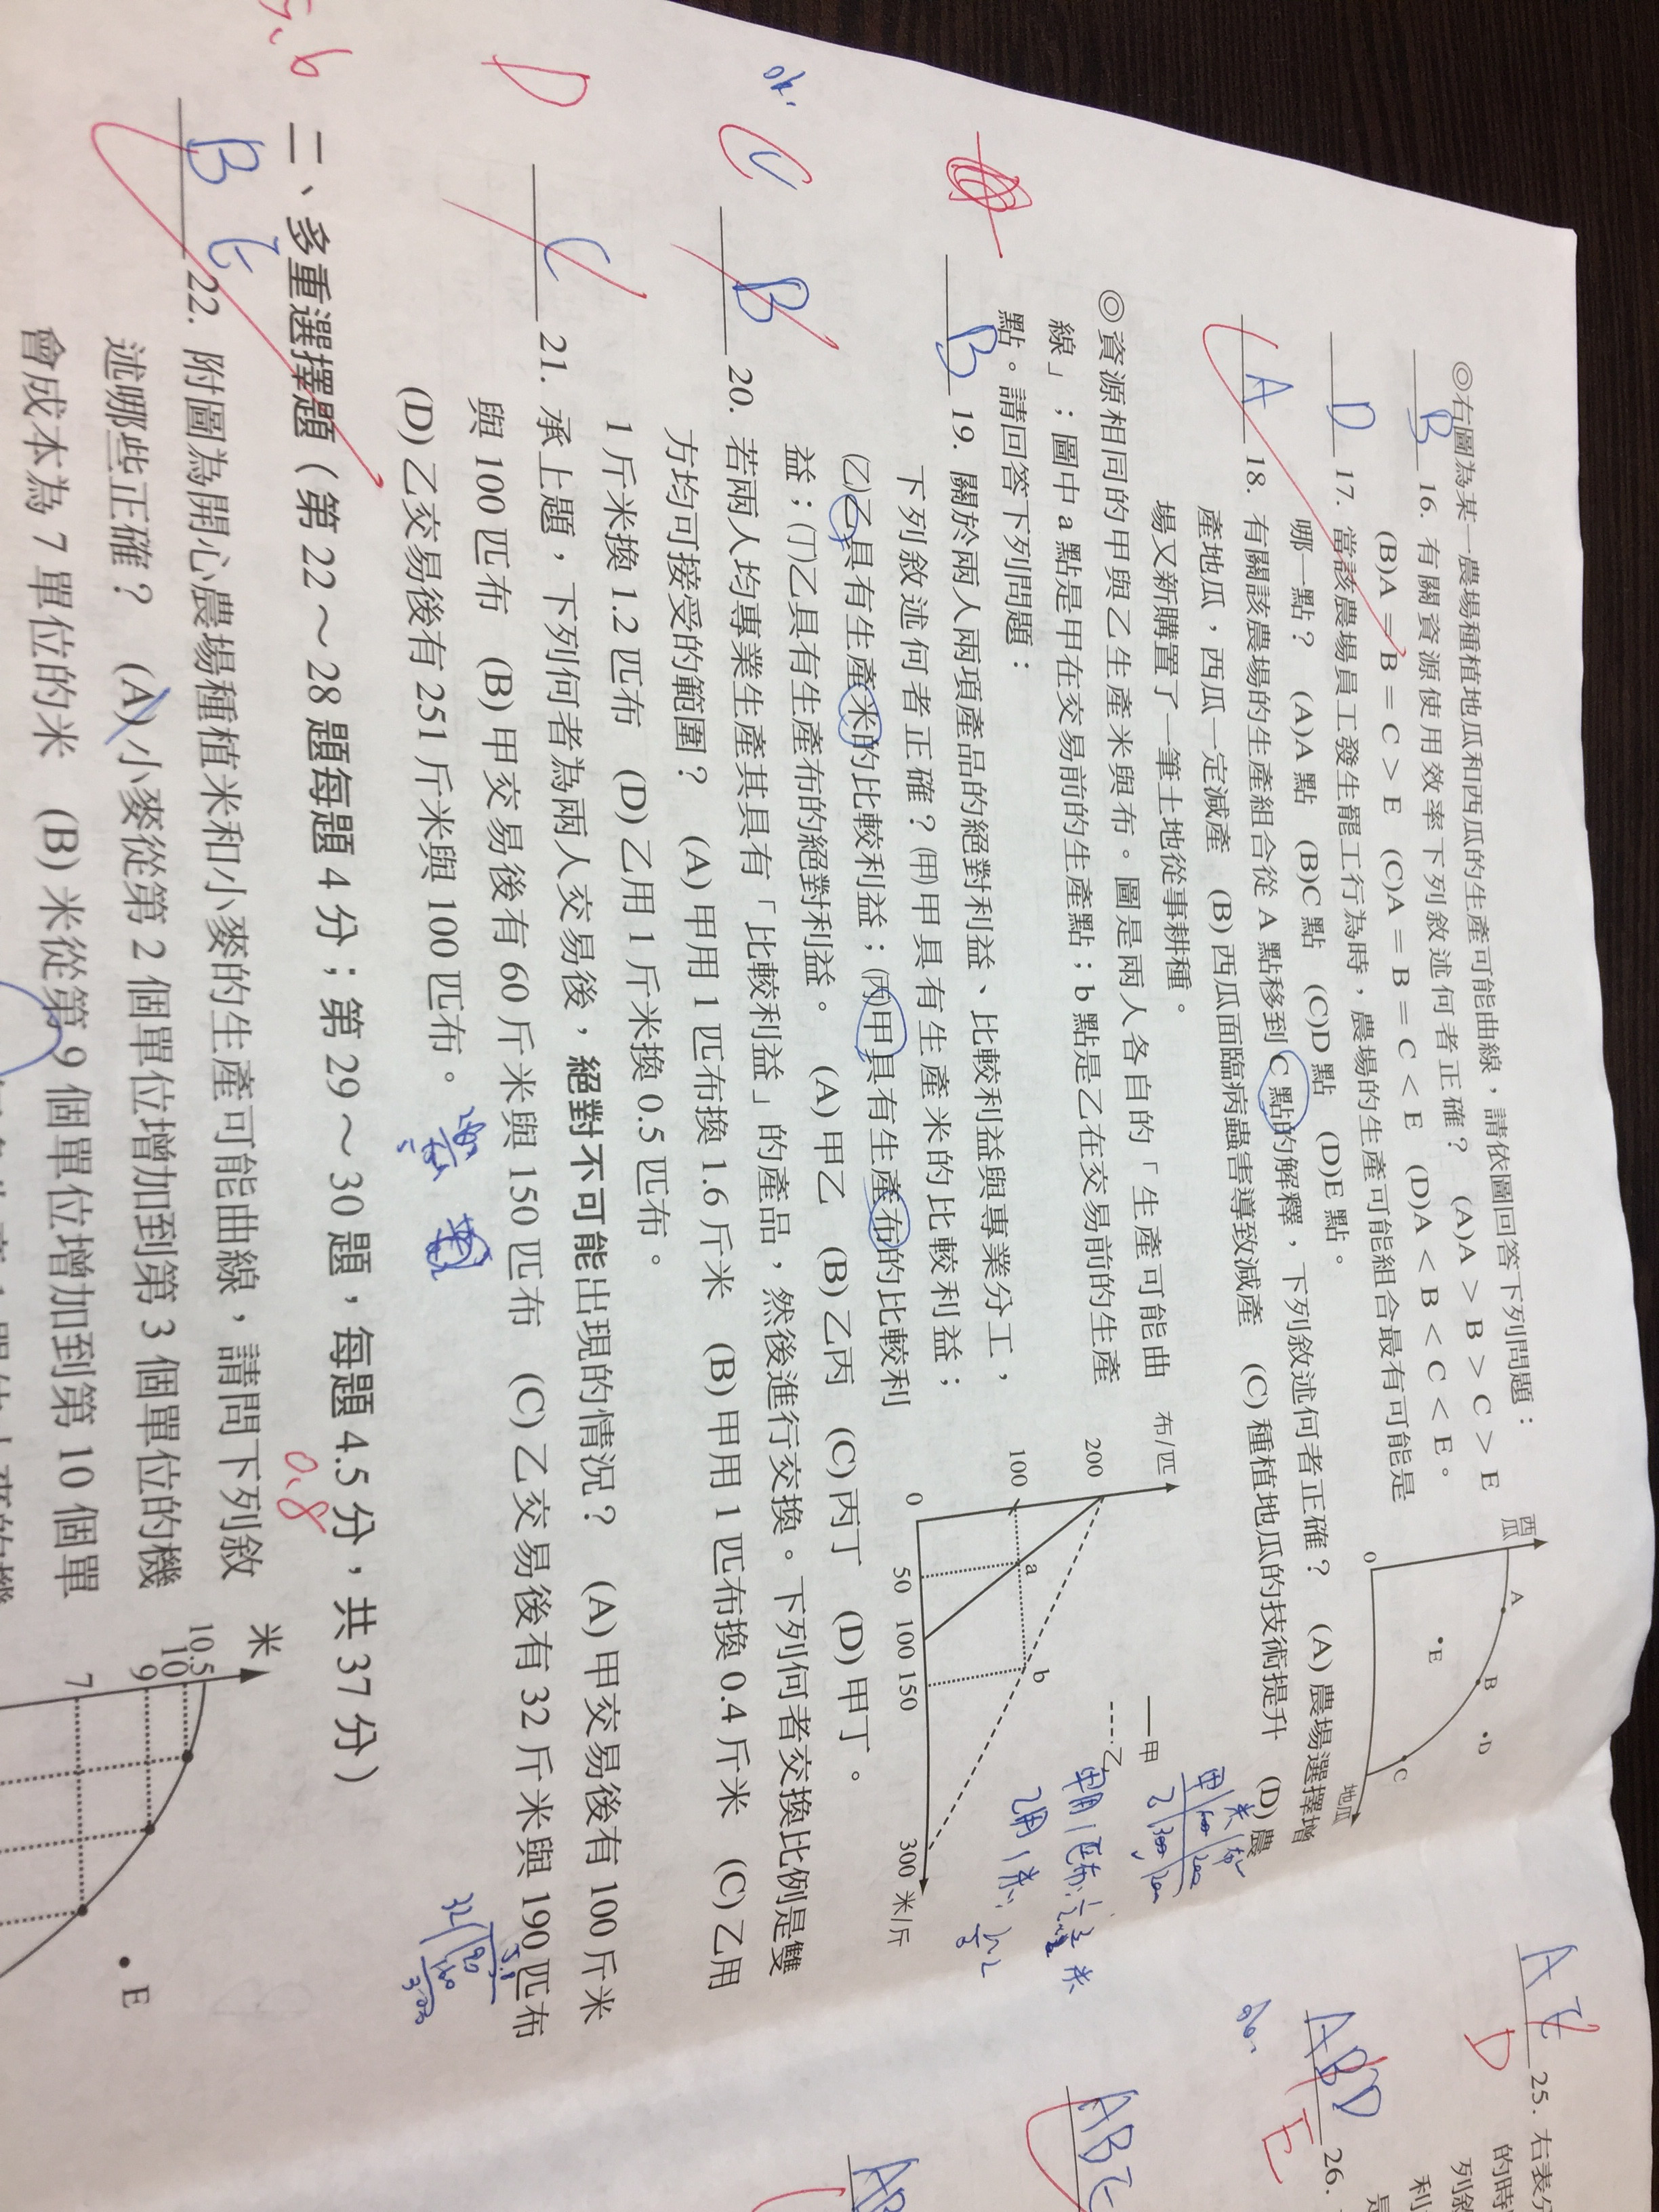 ◎右圖為某一農場種植地瓜和西瓜的生產可能曲線，請依圖回答下列問題：
B 16. 有關資源使用效率下列敘述何者正確？ (A)A > B > C > E
(B)A = B = C > E (C)A = B = C < E (D)A < B < C < E。
D 17. 當該農場員工發生罷工行為時，農場的生產可能組合最有可能是
哪一點？ (A)A 點 (B)C 點 (C)D 點 (D)E 點。
A 18. 有關該農場的生產組合從 A 點移到 C 點的解釋，下列敘述何者正確？ (A) 農場選擇增
產地瓜，西瓜一定減產 (B) 西瓜面臨病蟲害導致減產 (C) 種植地瓜的技術提升 (D) 農
場又新購置了一筆土地從事耕種。
西瓜
A
B
•D
•E
C
0
地瓜
◎資源相同的甲與乙生產米與布。圖是兩人各自的「生產可能曲
線」；圖中 a 點是甲在交易前的生產點；b 點是乙在交易前的生產
點。請回答下列問題：
B 19. 關於兩人兩項產品的絕對利益、比較利益與專業分工，
下列敘述何者正確？㈙甲具有生產米的比較利益；
㈚乙具有生產米的比較利益；㈛甲具有生產布的比較利
益；㈜乙具有生產布的絕對利益。 (A) 甲乙 (B) 乙丙 (C) 丙丁 (D) 甲丁。
布/匹
200
100
0
a
b
50 100 150 300 米/斤
甲
乙
米 布
甲 100 200
乙 300 200
C
B 20. 若兩人均專業生產其具有「比較利益」的產品，然後進行交換。下列何者交換比例是雙
方均可接受的範圍？ (A) 甲用 1 匹布換 1.6 斤米 (B) 甲用 1 匹布換 0.4 斤米 (C) 乙用
1 斤米換 1.2 匹布 (D) 乙用 1 斤米換 0.5 匹布。
D
C 21. 承上題，下列何者為兩人交易後，絕對不可能出現的情況？ (A) 甲交易後有 100 斤米
與 100 匹布 (B) 甲交易後有 60 斤米與 150 匹布 (C) 乙交易後有 32 斤米與 190 匹布
(D) 乙交易後有 251 斤米與 100 匹布。
二、多重選擇題（第 22～28 題每題 4 分；第 29～30 題，每題 4.5 分，共 37 分）
0.8
B E 22. 附圖為開心農場種植米和小麥的生產可能曲線，請問下列敘
述哪些正確？ (A) 小麥從第 2 個單位增加到第 3 個單位的機
會成本為 7 單位的米 (B) 米從第 9 個單位增加到第 10 個單
米
10.5
10
9
7
• E
A E
D
25. 右表分
的時
列敘
利
ABD
E
26.
ABE
AB